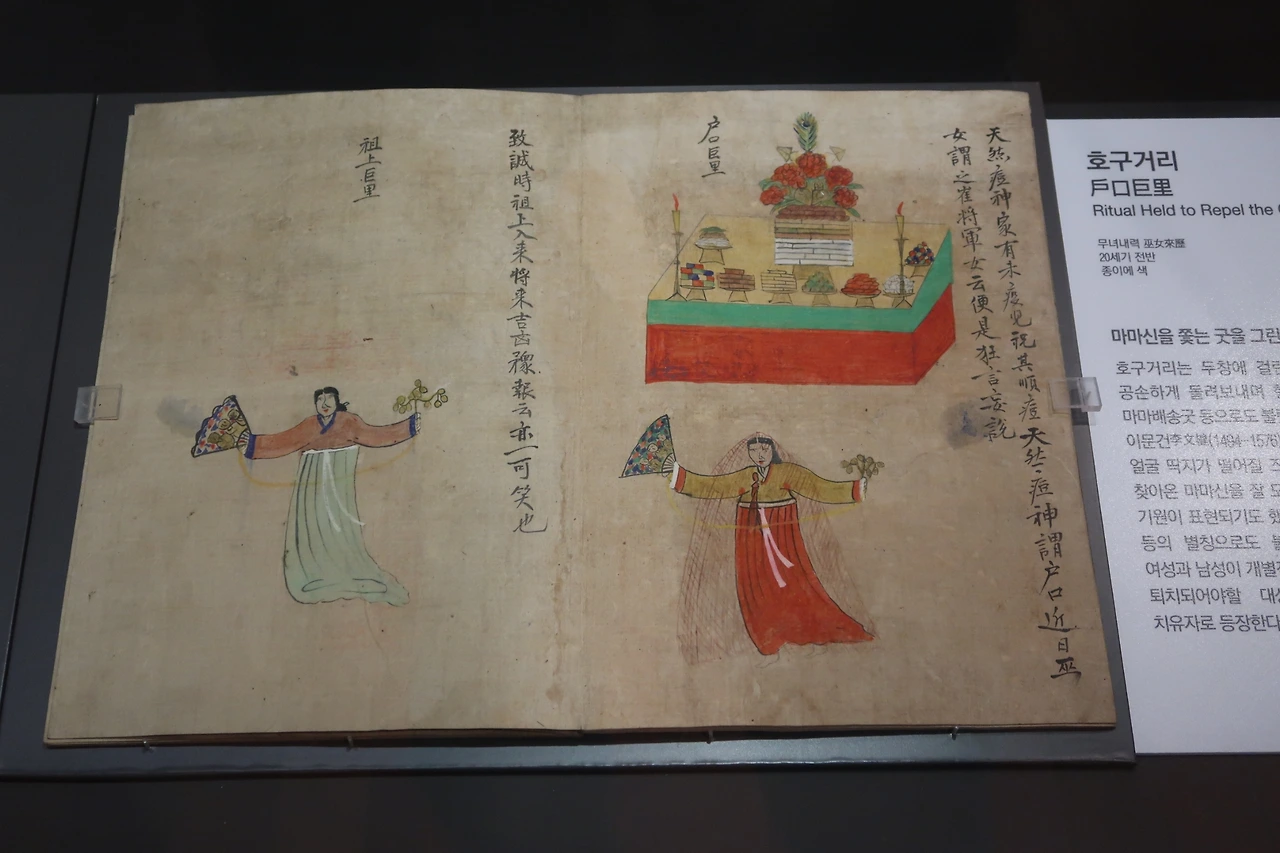 户巨里
天然痘神家有未疫児祝其順痘天然痘神謂户口近日巫
女謂之崔將軍女云便是狂言妄說
祖上巨里
致誠時祖上入来將来吉凶豫報云亦一可笑也
호구거리
戶口巨里
Ritual Held to Repel the
무녀내력 巫女來歷
20세기 전반
종이에 색
마마신을 쫓는 굿을 그린
호구거리는 두창에 걸린
공손하게 돌려보내며
마마배송굿 등으로도 불
이문건李文楗(1494-1576)
얼굴 딱지가 떨어질
찾아온 마마신을 잘
기원이 표현되기도 했
등의 별칭으로도
여성과 남성이 개별
퇴치되어야할 대상
치유자로 등장한다